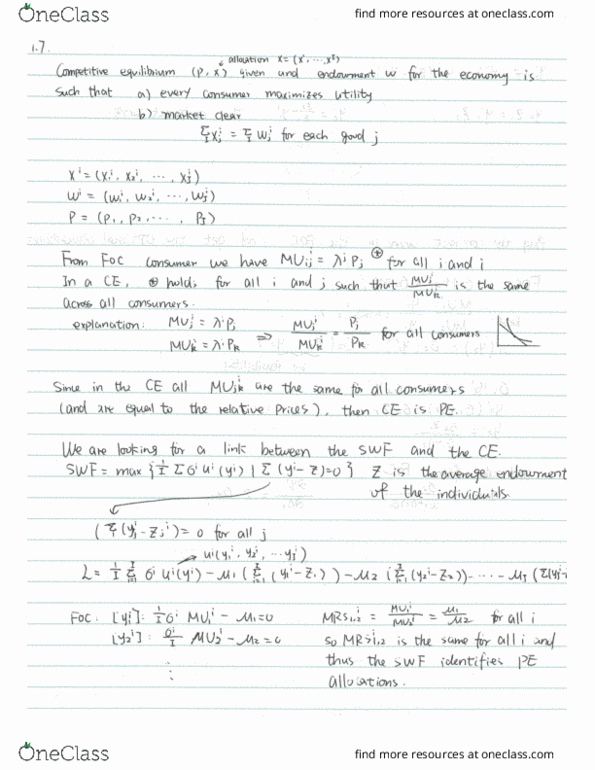 OneClass
find more resources at oneclass.com
1.7.
allocation X=(x¹,...,xᴵ)
Competitive equilibrium (P, X) given and endowment w for the economy is
such that a) every consumer maximizes utility
b) market clear
Σᵢ xⱼⁱ = Σᵢ wⱼⁱ for each good j
xⁱ = (x₁ⁱ, x₂ⁱ, ..., xⱼⁱ)
wⁱ = (w₁ⁱ, w₂ⁱ, ..., wⱼⁱ)
P = (P₁, P₂, ..., Pⱼ)
From FOC consumer we have MUⱼⁱ = λⁱ Pⱼ ⊕ for all i and j
In a CE, ⊕ holds for all i and j such that MUⱼⁱ/MUₖⁱ is the same
across all consumers.
explanation: MUⱼⁱ = λⁱ Pⱼ
MUₖⁱ = λⁱ Pₖ ⇒ MUⱼⁱ/MUₖⁱ = Pⱼ/Pₖ for all consumers
Since in the CE all MUⱼₖ are the same for all consumers
(and are equal to the relative prices), then CE is PE.
We are looking for a link between the SWF and the CE.
SWF = max { 1/I Σ σⁱ uⁱ(yⁱ) | Σ (yⁱ - z) = 0 } z is the average endowment
of the individuals.
(Σᵢ (yⱼⁱ - zⱼⁱ) = 0 for all j
uⁱ(y₁ⁱ, y₂ⁱ, ... yⱼⁱ)
L = 1/I Σ σⁱ uⁱ(yⁱ) - μ₁ (Σ (y₁ⁱ - z₁)) - μ₂ (Σ (y₂ⁱ - z₂)) - ... - μⱼ (Σ(yⱼⁱ -
FOC: [y₁ⁱ]: 1/I σⁱ MU₁ⁱ - μ₁ = 0 MRS₁,₂ⁱ = MU₁ⁱ/MU₂ⁱ = μ₁/μ₂ for all i
[y₂ⁱ]: σⁱ/I MU₂ⁱ - μ₂ = 0 so MRS₁,₂ⁱ is the same for all i and
thus the SWF identifies PE
allocations.
OneClass
find more resources at oneclass.com